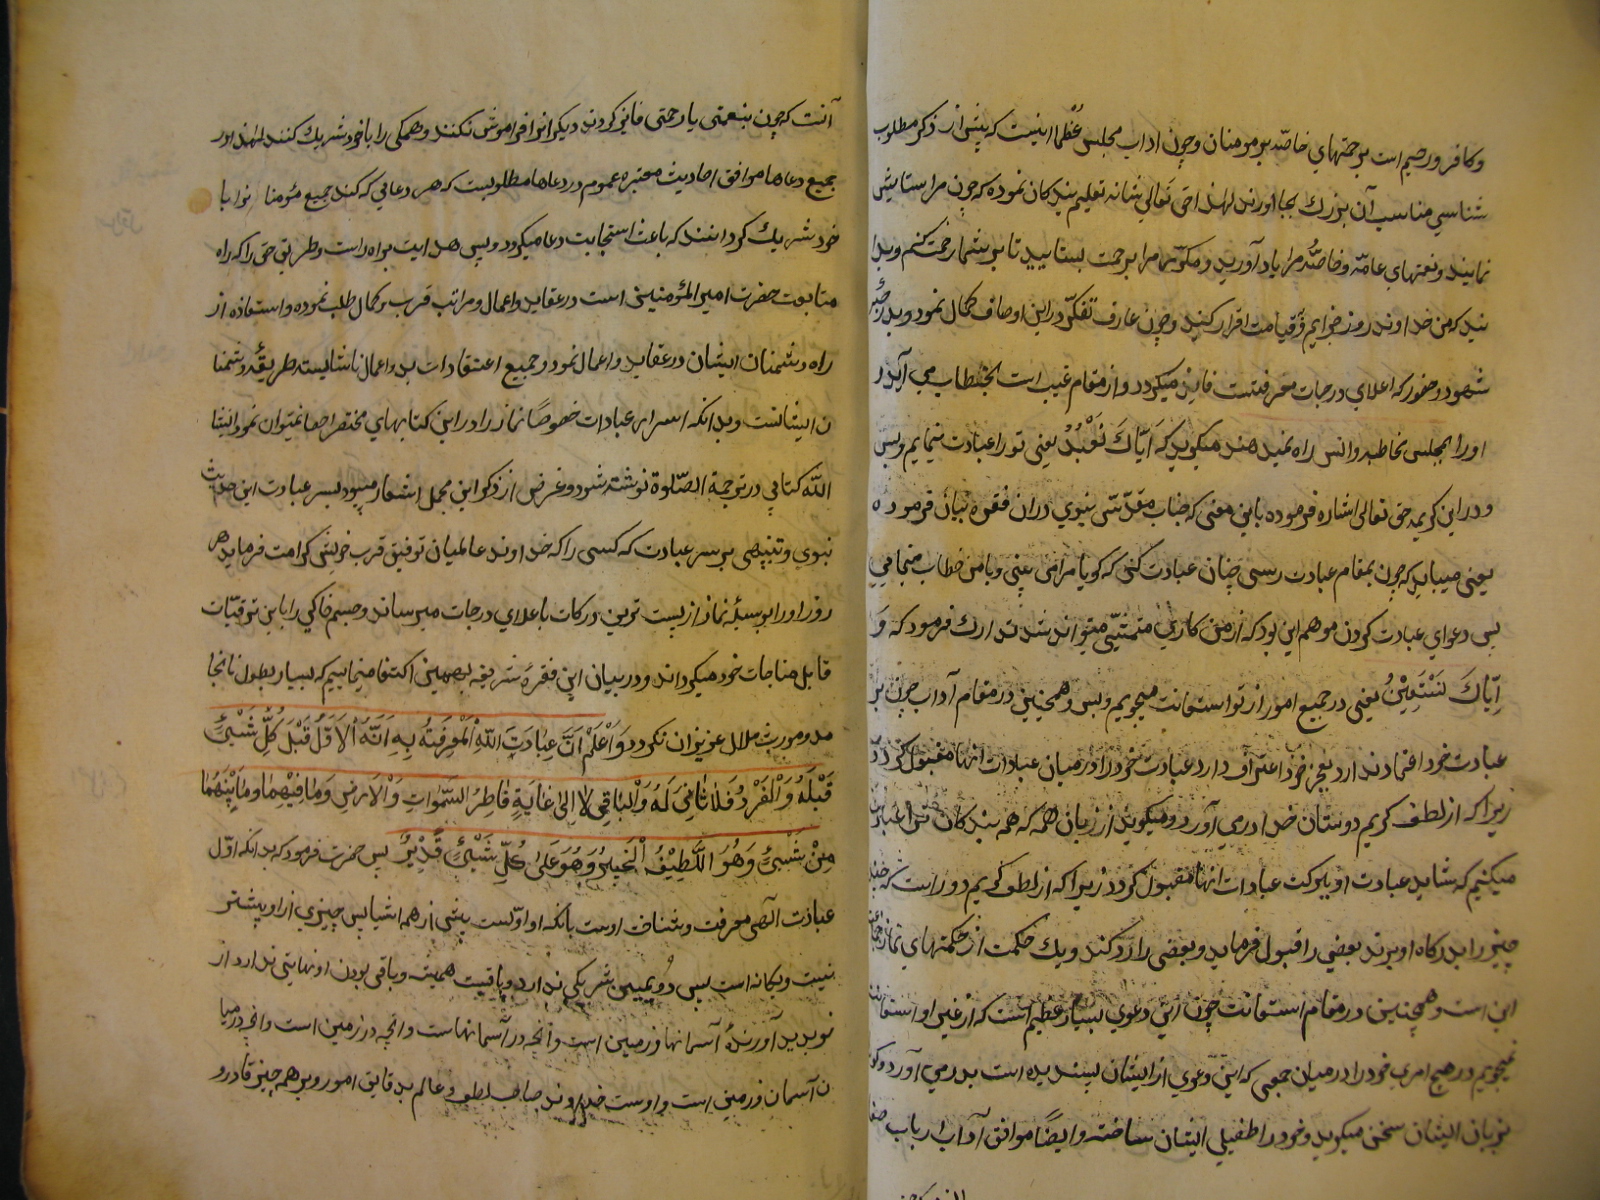 و کافر و رحیم است برحمتهای خاصّه بر مومنان و چون اداب مجلس عُظما اینست که پیش از ذکر مطلوب
شناسی مناسب آن بزرک بجا اورند لهذا حق تعالی شانه تعلیم بندکان نموده که چون مرا ستایش
نمایند و نعمتهای عامّه و خاصّه مرا یاد آورید و مرا برحمت بستایید تا بر شما رحمت کنم و بدا
نید که من خداوند روز جزایم و بقیامت اقرار کنید و چون عارف تفکّر در این اوصاف کمال نمود و بدرجه
شهود و حضور که اعلای درجات معرفتست فایز میکردد و از مقام غیب است بخطاب می آید و
او را بمجلس مخاطبه و انس راه میدهند میکوید که اَیّاکَ نَعْبُدُ یعنی تو را عبادت مینمایم و بس
و در این کریمه حق تعالی اشاره فرموده باین معنی که جناب مقدّس نبوی در ان فقره بیان فرموده
یعنی میباید که چون بمقام عبادت رسی چنان عبادت کنی که کویا مرا می بینی و با من خطاب مینمایی
پس دعوای عبادت کردن موهم این بود که از من کاری متمشّی میتواند شد تدارک فرمود که وَ
اِیّاکَ نَسْتَعِیْنُ یعنی در جمیع امور از تو استعانت میجویم و بس و همچنین در مقام آداب چون بر
عبادت خود اعتماد ندارد بعجز خود اعتراف دارد عبادت خود را در میان عبادات انها مقبول کردد
زیرا که از لطف کریم دوستان خدا دری آورد و میکوید از زبان همه که همه بندکان تو را عبادت
میکنیم که شاید عبادت او ببرکت عبادات انها مقبول کردد زیرا که از لطف کریم دور است که چند
چیز را بدرکاه او برند بعضی را قبول فرماید و بعضی را رد کند و یک حکمت از حکمتهای نماز جماعت
این است و همچنین در مقام استعانت چون این دعوی بسیار عظیم است که از غیر او استعانت
نمیجویم در هیچ امری خود را در میان جمعی که این دعوی از ایشان پسندیده است بدر می آورد و کو
بزبان ایشان سخن میکوید و خود را طفیلی ایشان ساخته و ایضًا موافق آداب ارباب صفا
آنست که چون بنعمتی یا رحمتی فایز کردند دیکرانرا فراموش نکنند و همکی را با خود شریک کنند لهذا در
جمیع دعاها موافق احادیث معتبره عموم در دعاها مطلوبست که هر دعایی که کند جمیع مؤمنا نرا با
خود شریک کردانند که باعث استجابت دعا میکردد و پس هدایت براه راست و طریق حق را که راه
متابعت حضرت امیر المؤمنین است در عقاید و اعمال و مراتب قرب و کمال طلب نموده و استعاذه از
راه دشمنان ایشان در عقاید و اعمال نمود و جمیع اعتقادات بد و اعمال ناشایسته طریقهٔ دشمنا
ن ایشانست و بدانکه اسرار عبادات خصوصًا نماز را در این کتابهای مختصر احصا نمیتوان نمود انشا
اللّه کتابی در ترجمة الصّلوة نوشته شود و غرض از ذکر این مجمل اشعار میبود بسر عبادت این حدیث
نبوی و تنبیهی بر سر عبادت که کسی را که خداوند عالمیان توفیق قرب خویش کرامت فرماید هر
روز او را بوسیلهٔ نماز از پست ترین درکات باعلای درجات میرساند و جسم خاکی را باین ترقیّات
قابل مناجات خود میکرداند و در بیان این فقرهٔ شریفه بهمین اکتفا مینماییم که بسیار بطول نانجا
مد و مورث ملال عزیزان نکردد وَاَعْلَمْ اَنَّ عِبادَتَ اللّهِ اَلْمَعْرِفَتُه بِهِ اَنَّهُ اْلاَوَّلُ قَبْلَ کُلِّ شَیْئٍ
قَبْلَهُ وَالْفَرْدُ فَلا ثانِیَ لَهُ وَالْباقِی لا اِلیٰ غایَةٍ فاطِرُ السَّمٰواتِ وَالْاَرضِ وَمٰا فِیْهِمٰا وَمٰا بَیْنَهُمٰا
مِنْ شَیْئٍ وَهُوَ اللَّطِیْفُ اْلخَبیرُ وَهُوَ عَلیٰ کُلِّ شَیْئٍ قَدْیرٌ پس حضرت فرمود که بدانکه اوّل
عبادت الهی معرفت و شناخت اوست بانکه او اوّلست پیش از همه اشیا پس چیزی از او پیشتر
نیست و یکانه است پس دُویمین شریکی ندارد و باقیست همیشه و باقی بودن او نهایتی ندارد از
نو پدید آورندهٔ آسمانها و زمین است و آنچه در آسمانهاست و انچه در زمین است و انچه در میا
ن آسمان و زمین است و اوست خداوند صاحب لطف و عالم بدقایق امور و بر همه چیز قادر و